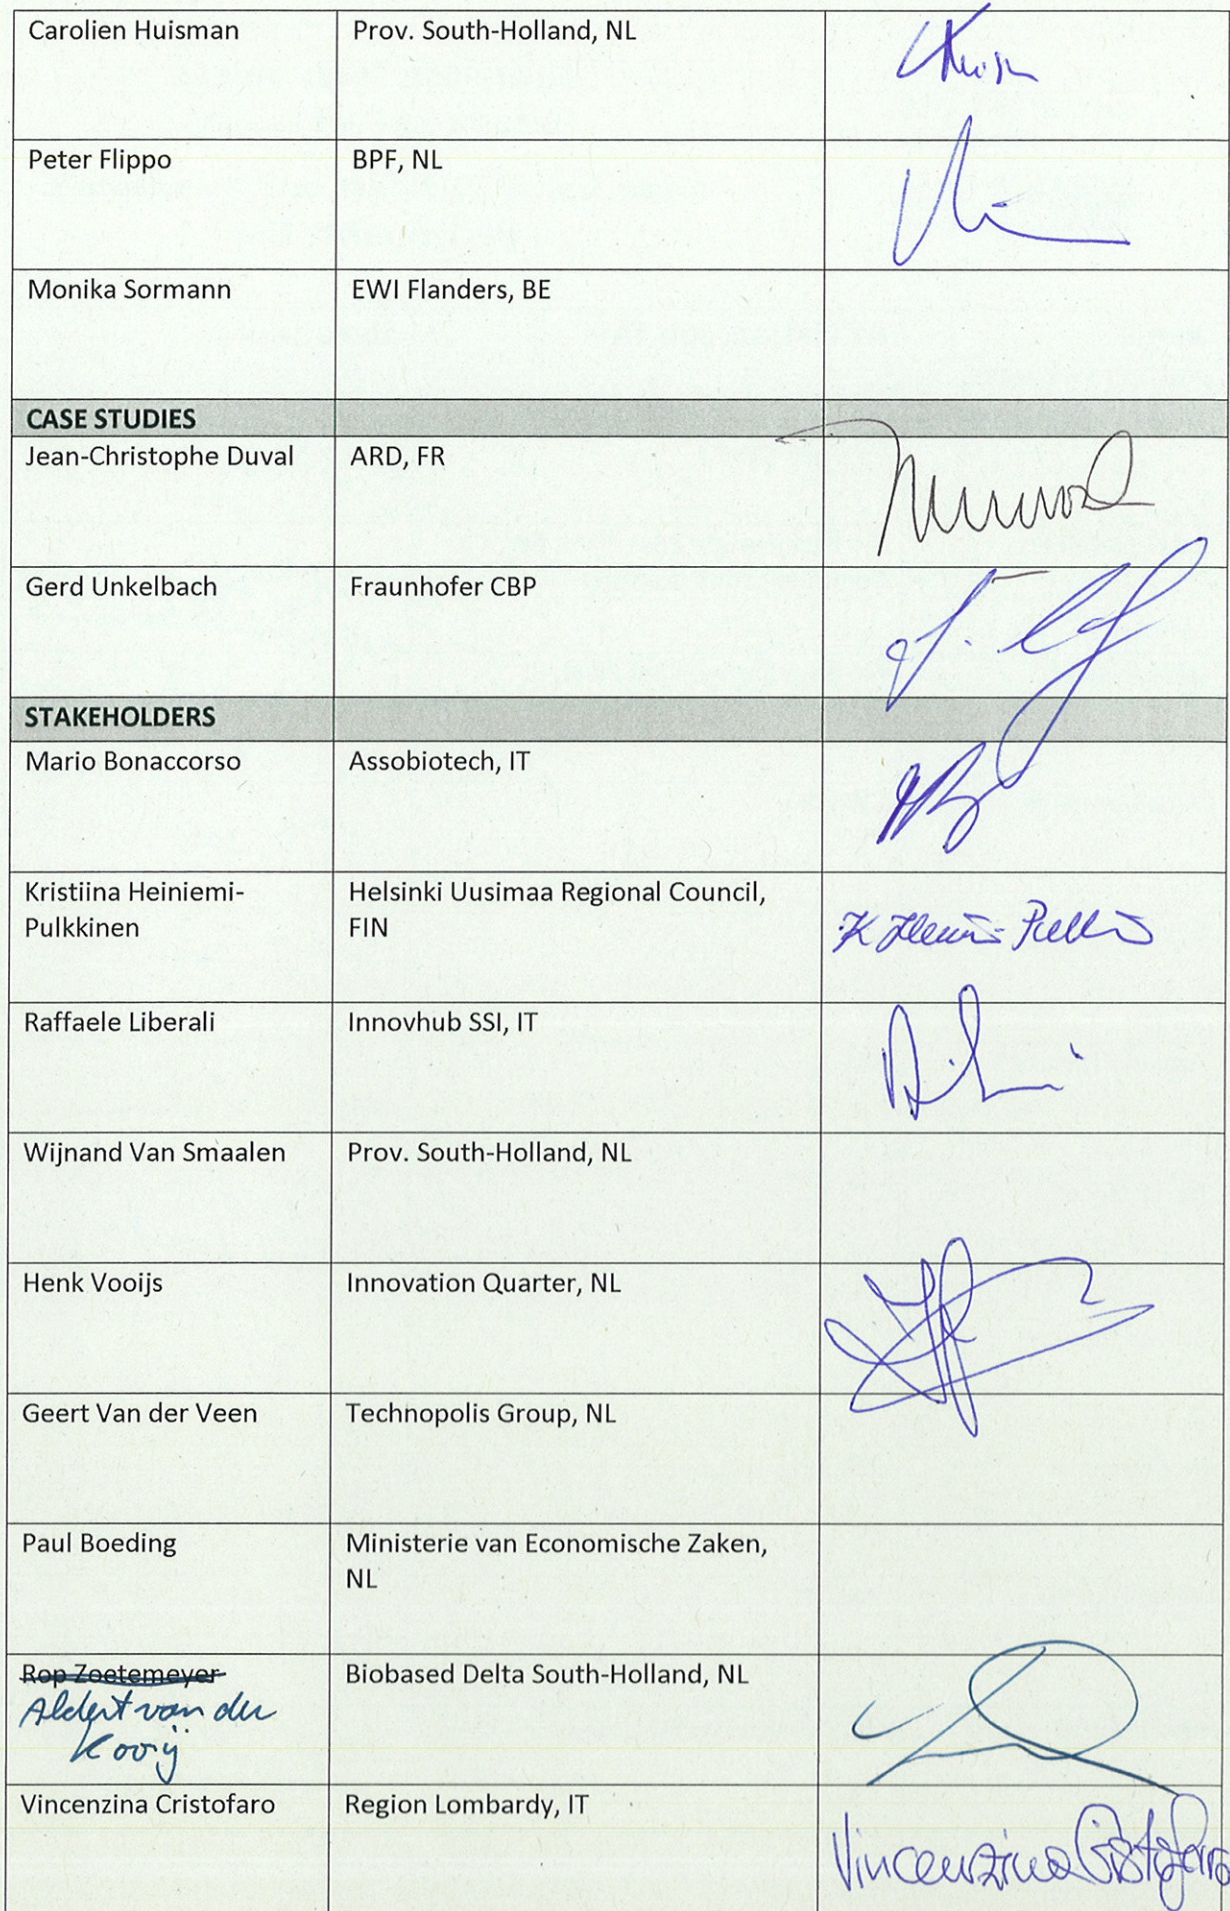 Carolien Huisman Prov. South-Holland, NL
Peter Flippo BPF, NL
Monika Sormann EWI Flanders, BE
CASE STUDIES
Jean-Christophe Duval ARD, FR
Gerd Unkelbach Fraunhofer CBP
STAKEHOLDERS
Mario Bonaccorso Assobiotech, IT
Kristiina Heiniemi- Helsinki Uusimaa Regional Council,
Pulkkinen FIN
Raffaele Liberali Innovhub SSI, IT
Wijnand Van Smaalen Prov. South-Holland, NL
Henk Vooijs Innovation Quarter, NL
Geert Van der Veen Technopolis Group, NL
Paul Boeding Ministerie van Economische Zaken,
NL
Rop Zoetemeyer Biobased Delta South-Holland, NL
Aldert van der
Kooij
Vincenzina Cristofaro Region Lombardy, IT Vincenzina Cristofaro